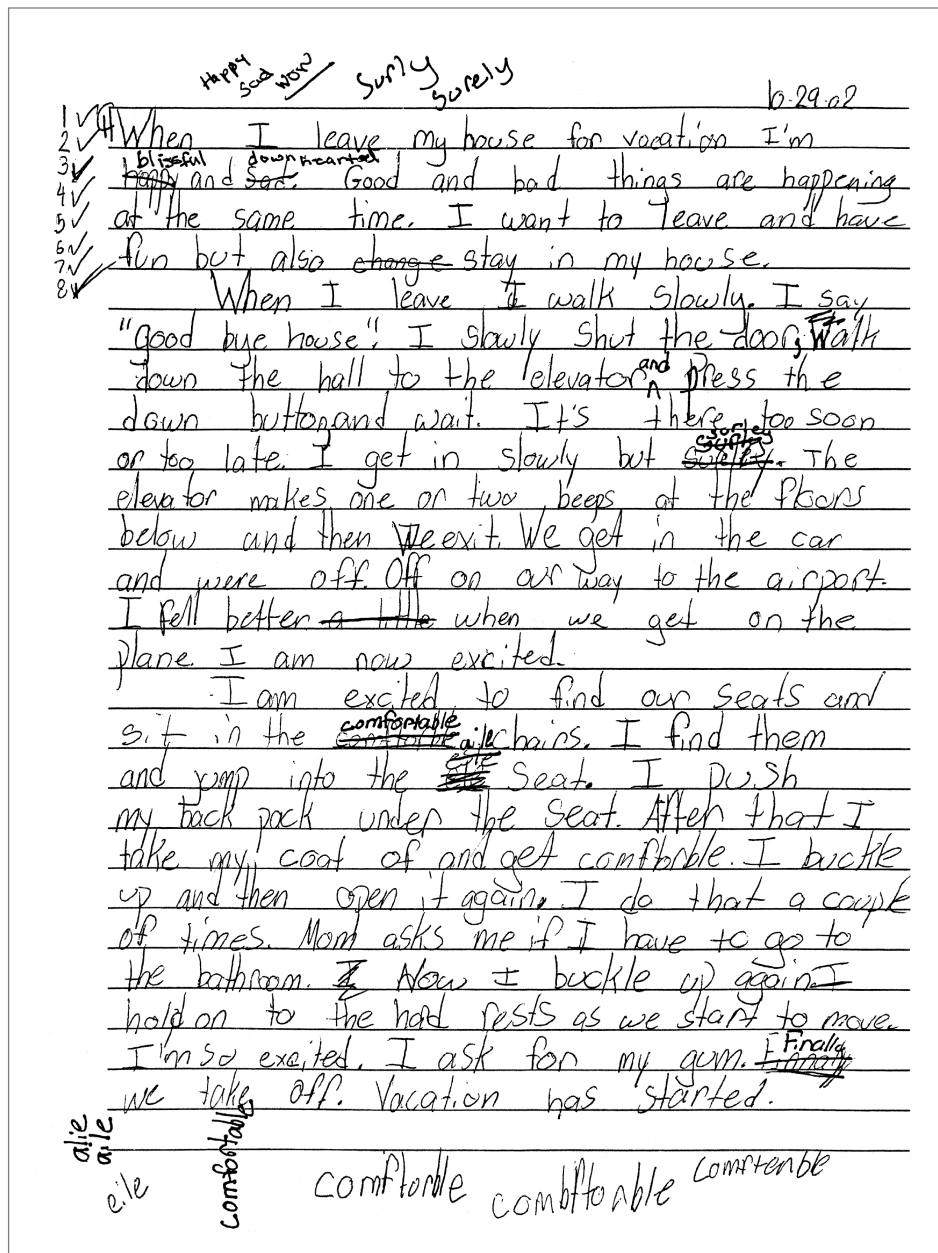 Happy
sad
wow
Surly
surely
10-29-02
1
2
3
4
5
6
7
8
When I leave my house for vacation I'm
blissful downhearted
happy and sad. Good and bad things are happening
at the same time. I want to leave and have
fun but also change stay in my house.
When I leave I walk slowly. I say
"good bye house". I slowly shut the door, walk
down the hall to the elevator and press the
down button, and wait. It's there too soon
surley
or too late. I get in slowly but. The
elevator makes one or two beeps at the floors
below and then we exit. We get in the car
and were off. Off on our way to the airport.
I fell better a little when we get on the
plane. I am now excited.
I am excited to find our seats and
comfortable
sit in the aile chairs. I find them
and jump into the seat. I push
my back pack under the seat. After that I
take my coat of and get comftorble. I buckle
up and then open it again. I do that a couple
of times. Mom asks me if I have to go to
the bathroom. Now I buckle up again I
hold on to the hand rests as we start to move.
Finally
I'm so excited. I ask for my gum.
we take off. Vacation has started.
alie
aile
eile
comfortable
comftorble
combftorable
comftenble